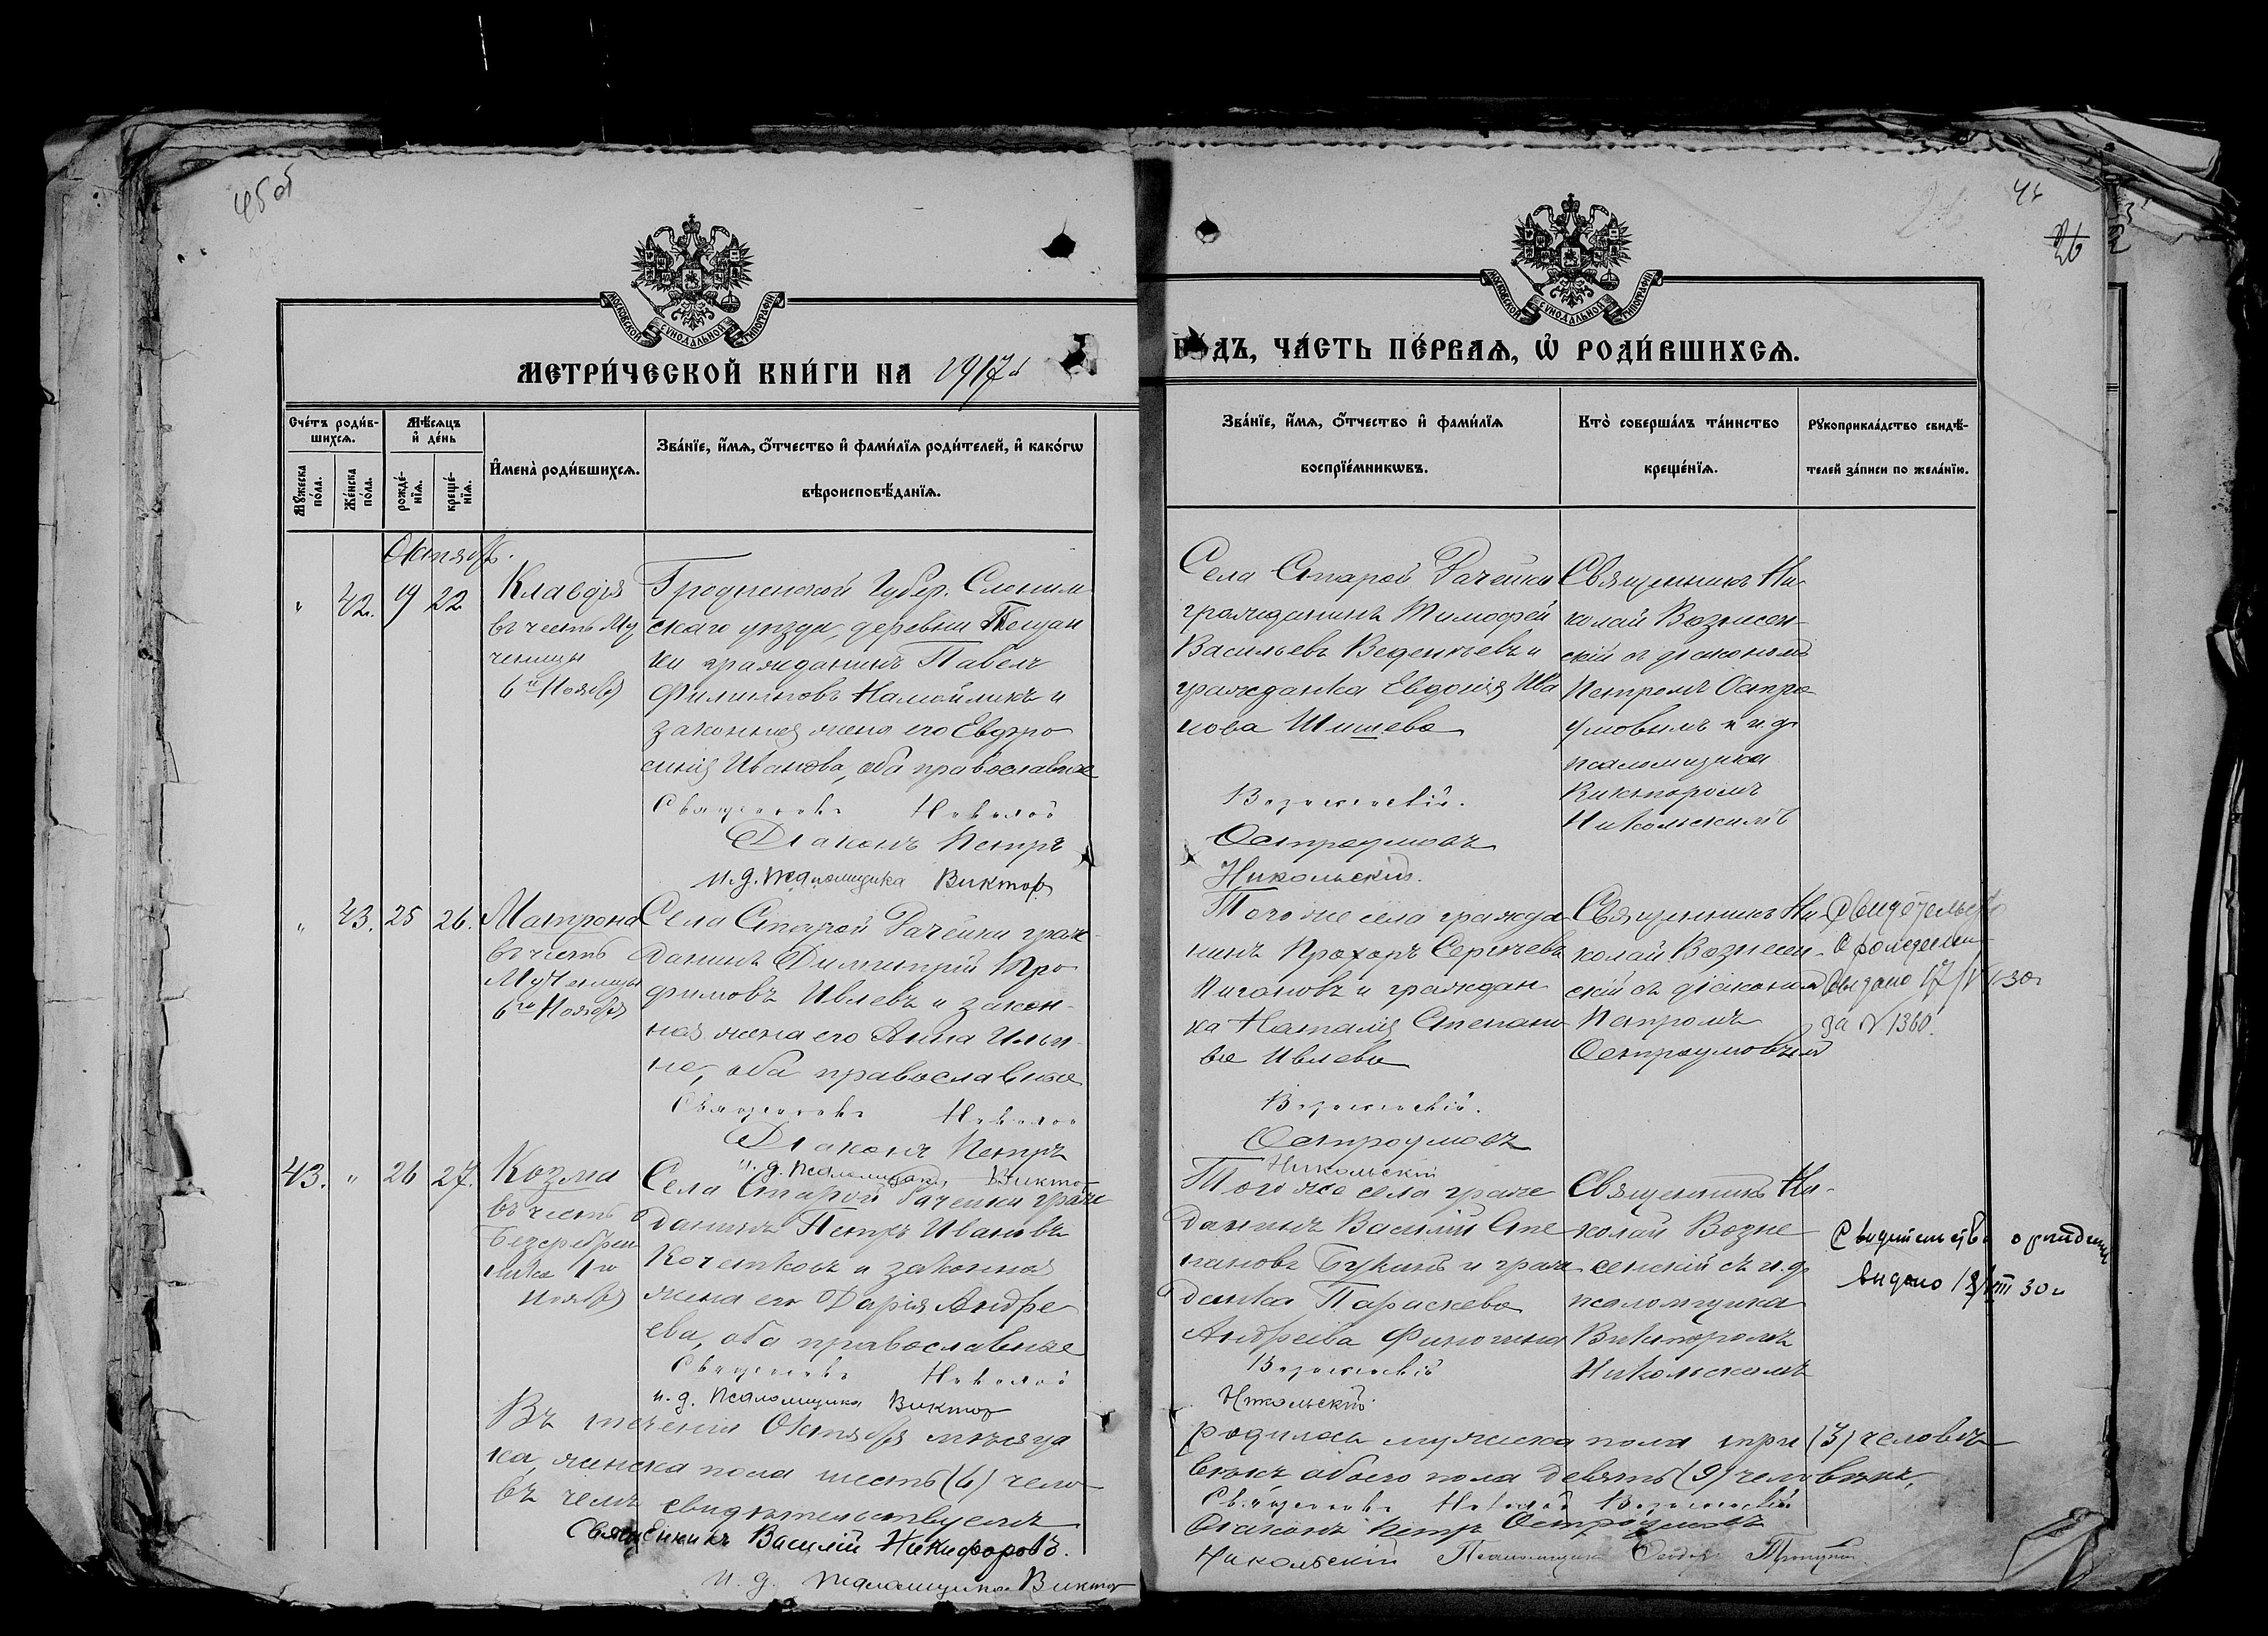 45об
МОСКОВСКОЙ СѴНОДАЛЬНОЙ ТИПОГРАФІИ
МЕТРИ́ЧЕСКОЙ КНИ́ГИ НА 1917 г
Сче́тъ роди́вшихсѧ.
Мꙋ́жеска по́ла.
Же́нска по́ла.
Мѣ́сѧцъ и҆ де́нь
рожде́нїѧ.
креще́нїѧ.
И҆мена̀ роди́вшихсѧ.
Зва́нїе, и҆́мѧ, ѻ҆́тчество и҆ фами́лїѧ роди́телей, и҆ како́гѡ
вѣроисповѣ́данїѧ.
Октябрь.
" 42. 19 22
Клавдія
въ честь Му
ченицы
6го Ноября
Гродненской Губер. Слоним
скаго уѣзда, деревни Пещан
ки гражданинъ Павелъ
Филипповъ Намойликъ и
законная жена его Евфро
синія Иванова, оба православные
Священникъ Николай
Діаконъ Петръ
и.д. псаломщика Викторъ
" 43. 25 26.
Матрона
въ честь
Мученицы
6го Ноября
Села Старой Рачейки граж
данинъ Димитрій Тро
фимовъ Ивлевъ и закон-
ная жена его Анна Ильи-
на, оба православные
Священникъ Николай
Діаконъ Петръ
и.д. псаломщика Викторъ
43. " 26 27.
Козма
въ честь
Безсребрен
ника 1го
Ноября
Села Старой Рачейки граж
данинъ Петръ Ивановъ
Кочетковъ и законная
жена его Дарія Андре
ева, оба православные
Священникъ Николай
и.д. псаломщика Викторъ
Въ теченіи Октября мѣсяца
ка, женска пола шесть (6) чело
въ чемъ свидѣтельствуемъ
Священникъ Василій Никифоровъ.
и.д. псаломщика Викторъ
26
МОСКОВСКОЙ СѴНОДАЛЬНОЙ ТИПОГРАФІИ
ГОДЪ, ЧА́СТЬ ПЕ́РВАѦ, Ѡ҆ РОДИ́ВШИХСѦ.
Зва́нїе, и҆́мѧ, ѻ҆́тчество и҆ фами́лїѧ
воспрїе́мникѡвъ.
Кто̀ соверша́лъ та́инство
креще́нїѧ.
Рꙋкоприкла́дство свидѣ́-
телей за́писи по жела́нїю.
Села Старой Рачейки
гражданинъ Тимофей
Васильевъ Веденѣевъ и
гражданка Евдокія Ива
нова Шишева
Вознесенскій.
Остроумовъ
Никольскій.
Священникъ Ни-
колай Вознесен-
скій съ діакономъ
Петромъ Остро
умовымъ и и.д.
псаломщика
Викторомъ
Никольскимъ
Того же села гражда
нинъ Прохоръ Сергѣевъ
Пигановъ и граждан
ка Наталія Степано
ва Ивлева
Вознесенскій.
Остроумовъ
Никольскій
Священникъ Ни-
колай Вознесен-
скій съ діакономъ
Петромъ
Остроумовымъ
Свидетельство
о рождении
выдано 30г
за № 1360.
Того же села граж
данинъ Василій Сте
пановъ Букинъ и граж
данка Параскева
Андреева Финогина
Вознесенскій
Никольскій.
Священникъ Ни-
колай Возне
сенскій съ и.д.
псаломщика
Викторомъ
Никольскимъ
Свидетельство о рождении
выдано 18/VIII 30г
родилось мужеска пола три (3) человѣ
вѣкъ, обоего пола девять (9) человѣкъ,
Священникъ Николай Вознесенскій
Діаконъ Петръ Остроумовъ
Никольскій Псаломщикъ Ѳеодоръ Троицкій.